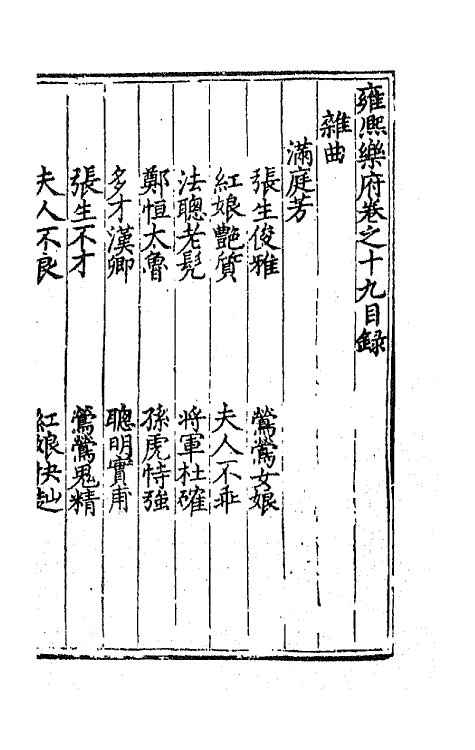 雍熙樂府卷之十九目錄
雜曲
滿庭芳
張生俊雅 鶯鶯女娘
紅娘艷質 夫人不乖
法聰老髡 將軍杜確
鄭恒太魯 孫虎恃強
多才漢卿 聰明實甫
張生不才 鶯鶯鬼精
夫人不良 紅娘快